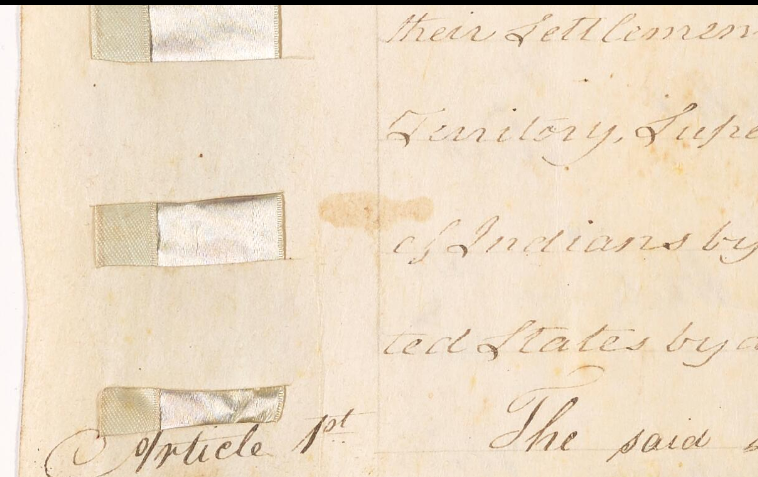 their Settlemen
Territory, Supe
of Indians by
ted States by a
Article 1st The said